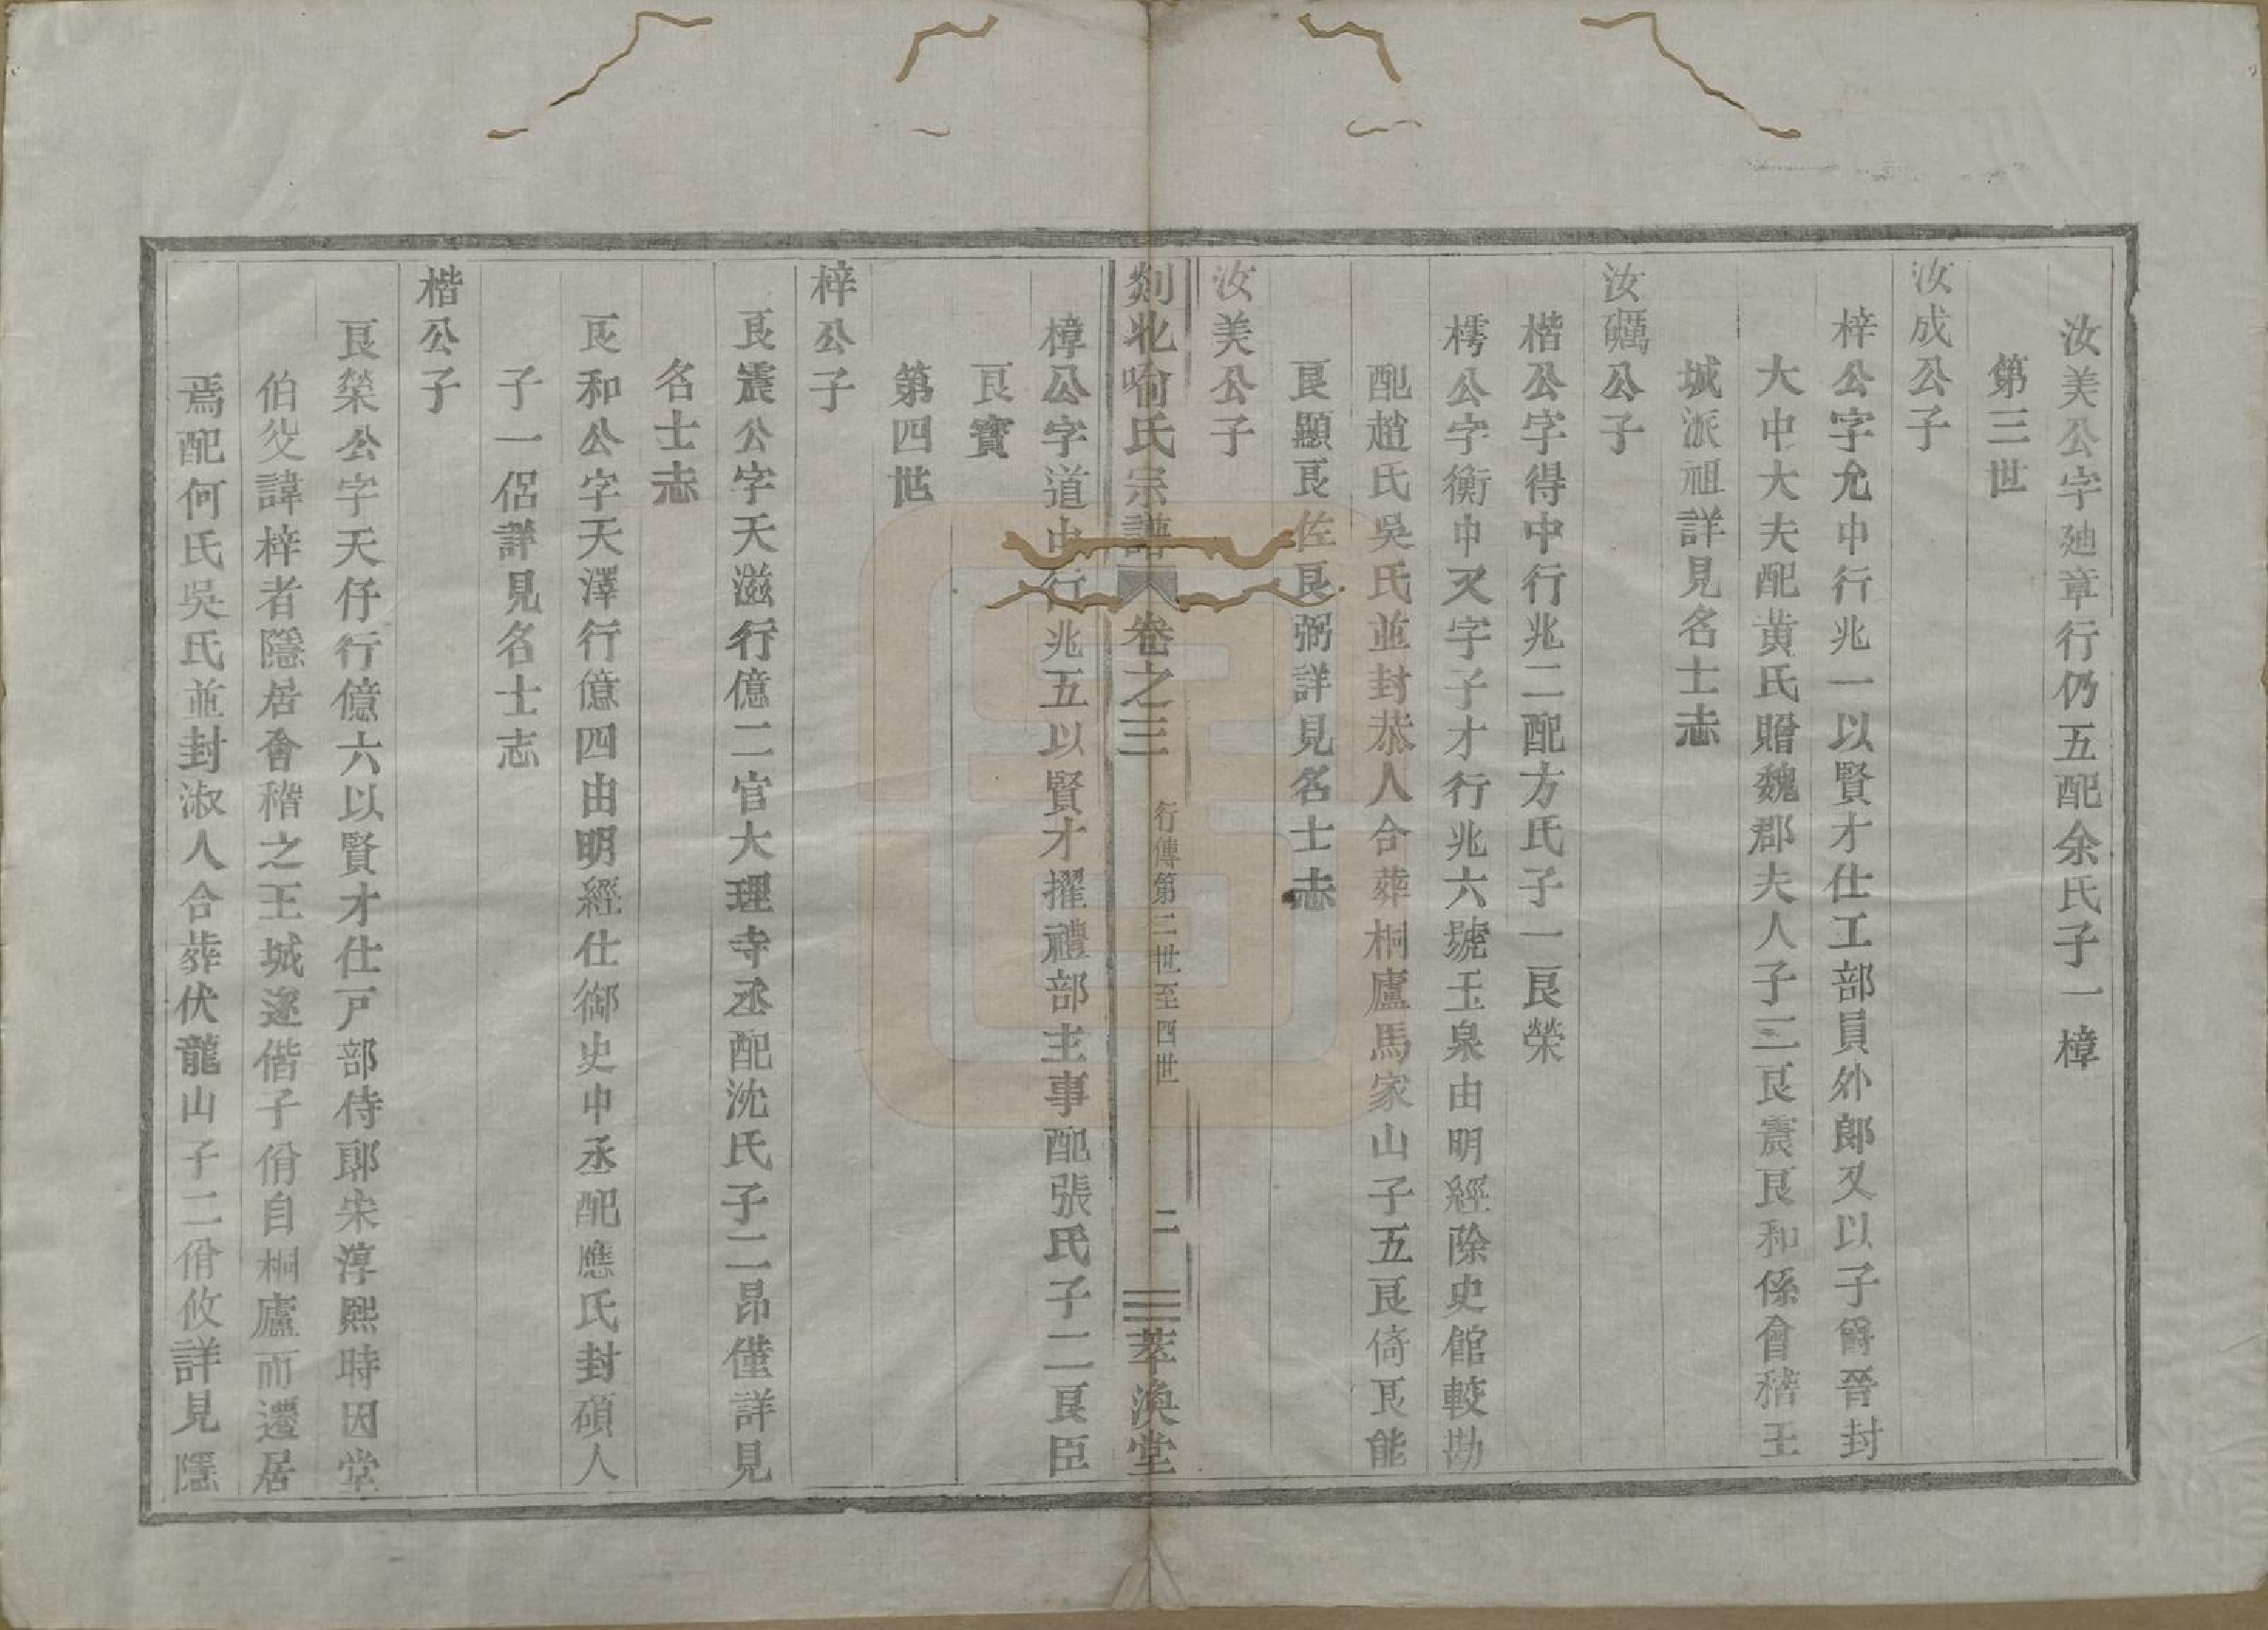 汝美公字廸章行仍五配余氏子一樟
第三世
汝成公子
梓公字允中行兆一以賢才仕工部員外郞又以子爵晉封
大中大夫配黃氏贈魏郡夫人子二艮震艮和係會稽王
城派祖詳見名士志
汝礪公子
楷公字得中行兆二配方氏子一艮榮
樗公字衡中又字子才行兆六號玉泉由明經除史館較勘
配趙氏吳氏並封恭人合葬桐廬馬家山子五艮倚艮能
艮顯艮佐艮弼詳見名士志
汝美公子
剡北喻氏宗譜 卷之三 行傳第二世至四世 二 萃渙堂
樟公字道中行兆五以賢才擢禮部主事配張氏子二艮臣
艮寶
第四世
梓公子
艮震公字天滋行億二官大理寺丞配沈氏子二昂僅詳見
名士志
艮和公字天澤行億四由明經仕御史中丞配應氏封碩人
子一侶詳見名士志
楷公子
艮榮公字天仔行億六以賢才仕戸部侍郞宋淳熙時因堂
伯父諱梓者隱居會稽之王城遂偕子佾自桐廬而遷居
焉配何氏吳氏並封淑人合葬伏龍山子二佾攸詳見隱